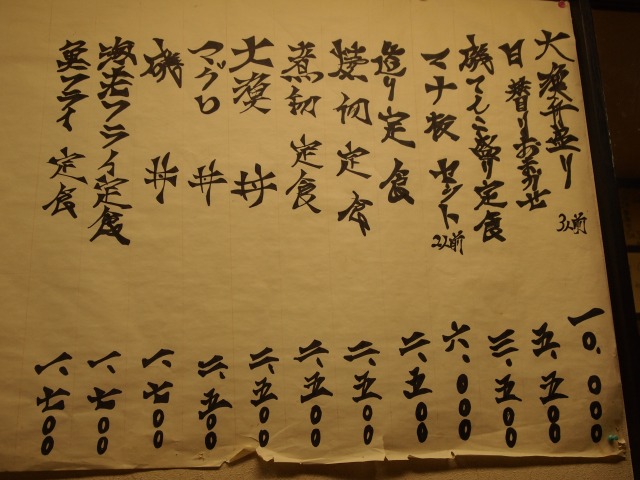 大漁舟盛り 3人前 一〇、〇〇〇
日替りおまかせ 五、五〇〇
磯てんこ盛り定食 三、五〇〇
マナ板セット 2人前 六、〇〇〇
造り定食 二、五〇〇
焼切定食 二、五〇〇
煮切定食 二、五〇〇
大漁丼 二、五〇〇
マグロ丼 二、五〇〇
磯丼 一、七〇〇
海老フライ定食 一、七〇〇
魚フライ定食 一、七〇〇